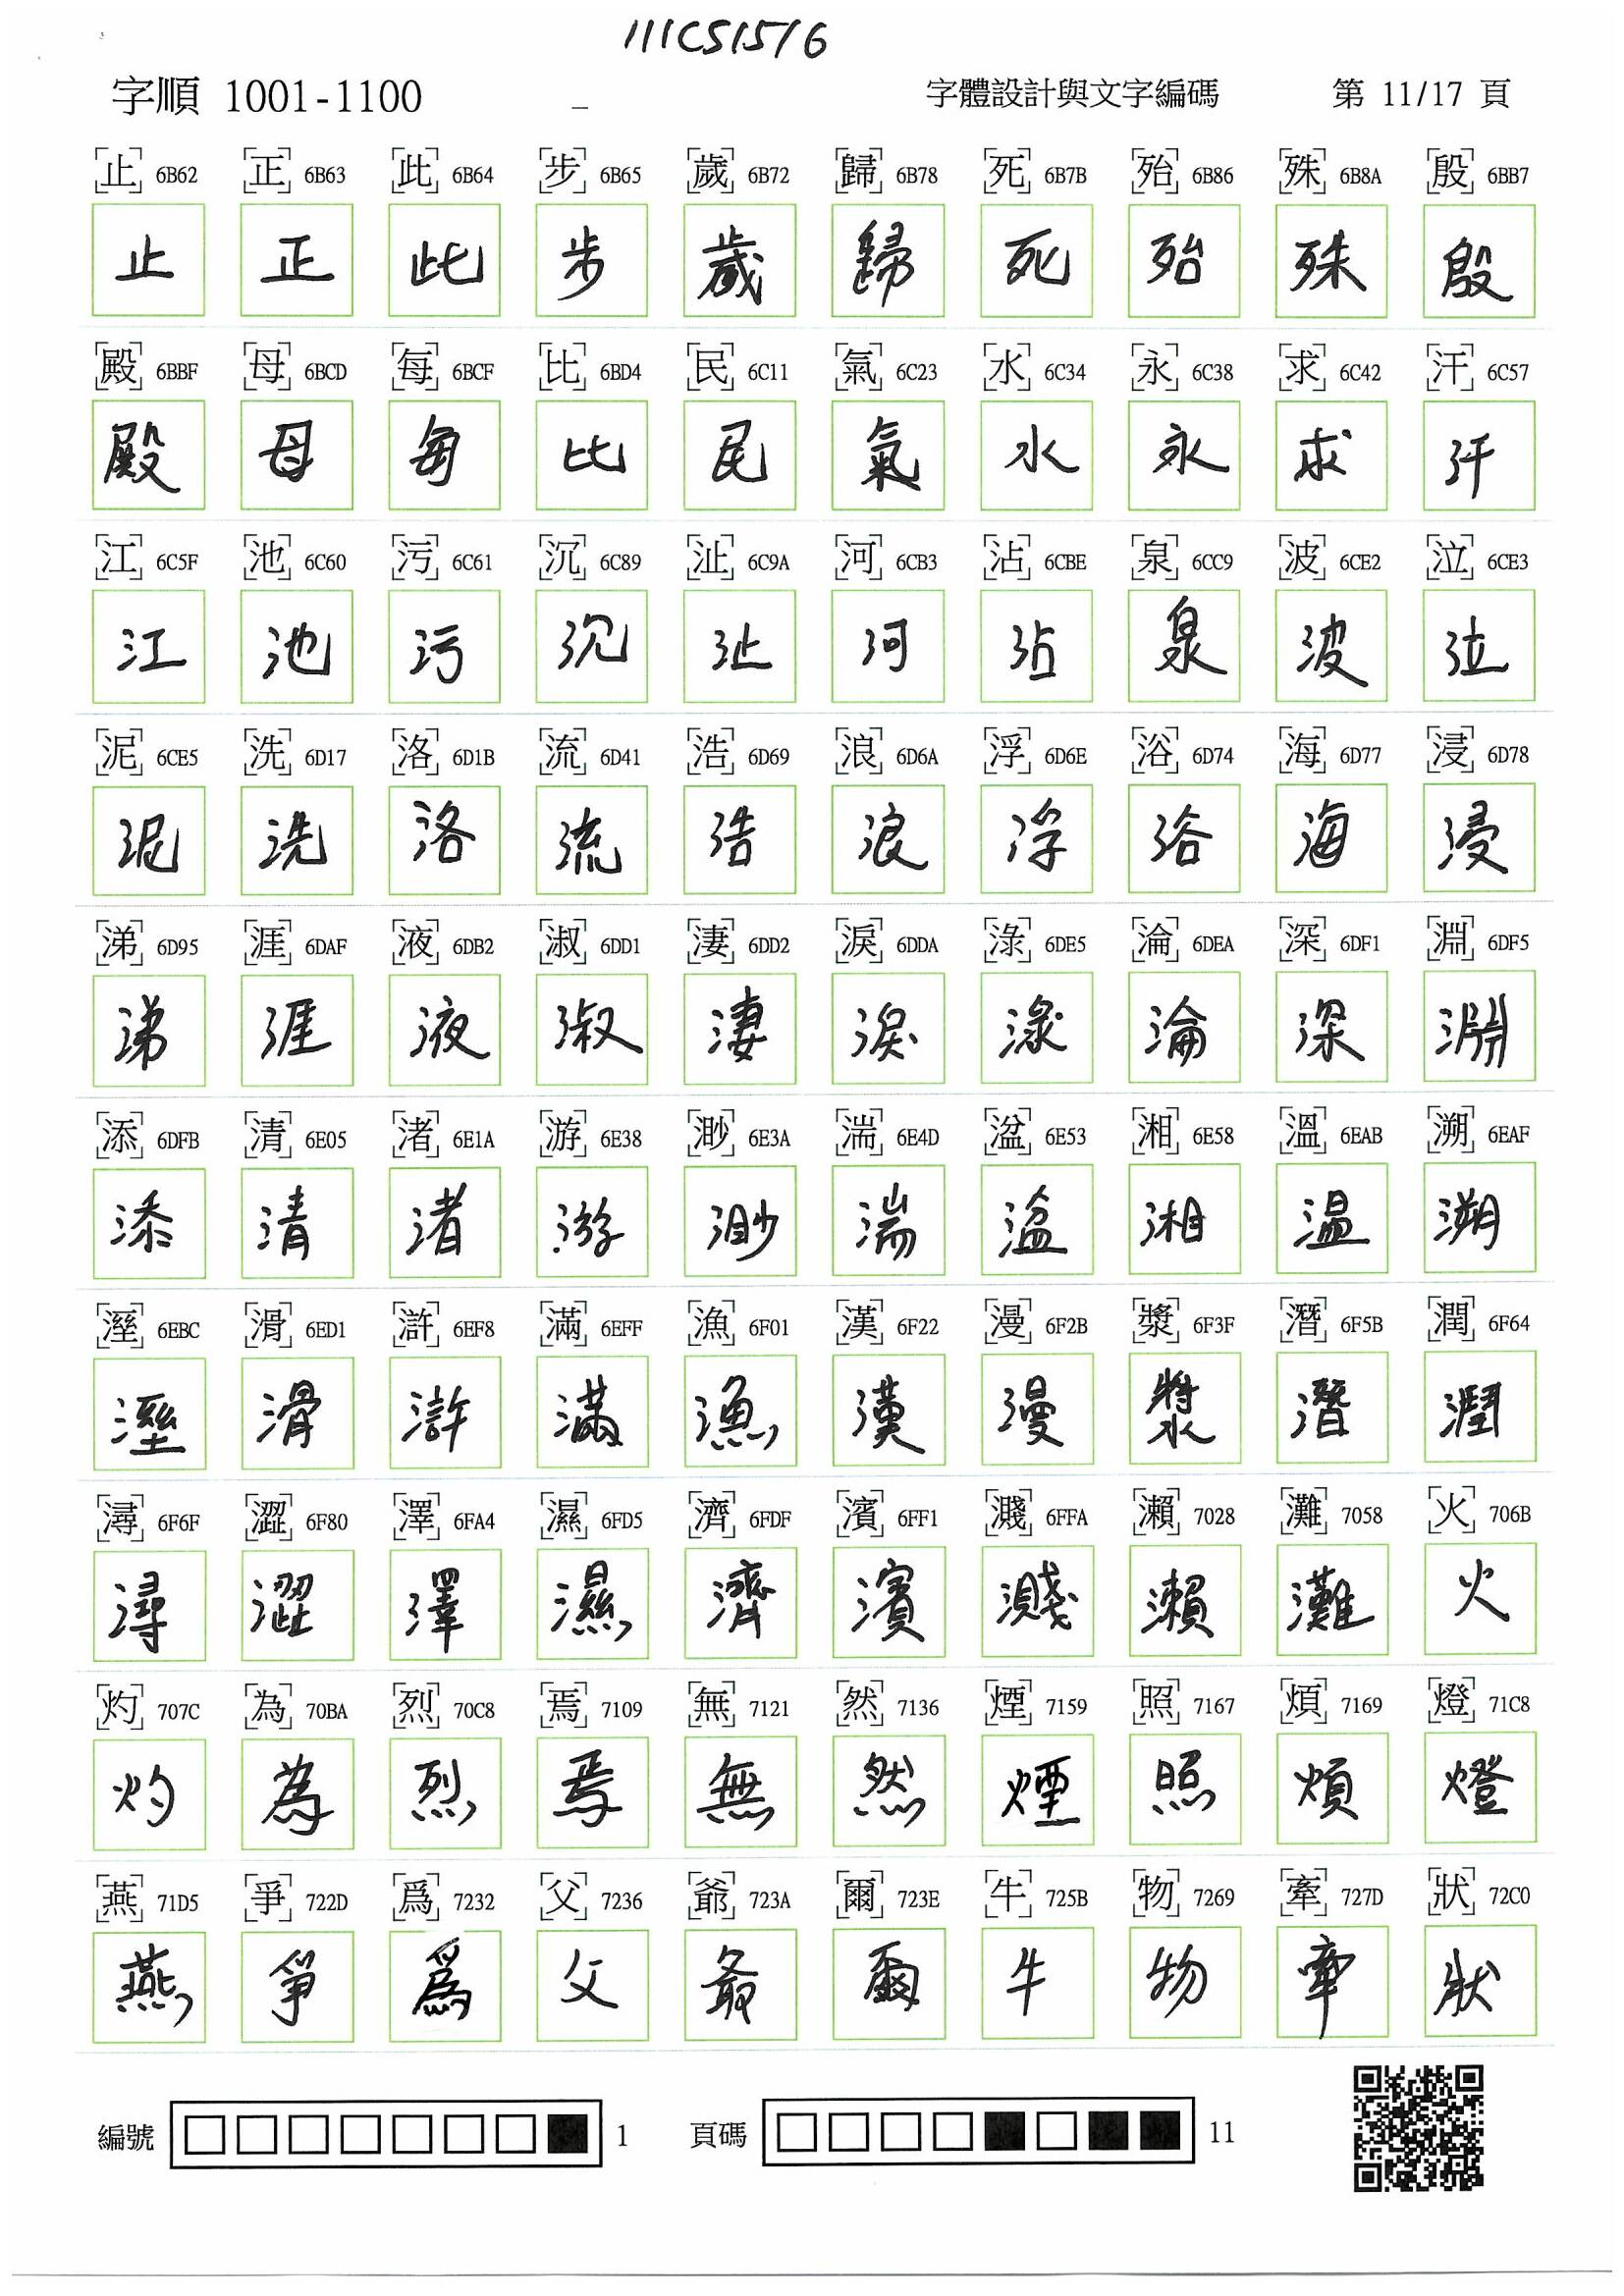 111CS1516
字順 1001-1100 字體設計與文字編碼 第 11/17 頁
止 6B62 正 6B63 此 6B64 步 6B65 歲 6B72 歸 6B78 死 6B7B 殆 6B86 殊 6B8A 殷 6BB7
止 正 此 步 歲 歸 死 殆 殊 殷
殿 6BBF 母 6BCD 每 6BCF 比 6BD4 民 6C11 氣 6C23 水 6C34 永 6C38 求 6C42 汗 6C57
殿 母 每 比 民 氣 水 永 求 汗
江 6C5F 池 6C60 污 6C61 沉 6C89 沚 6C9A 河 6CB3 沾 6CBE 泉 6CC9 波 6CE2 泣 6CE3
江 池 污 沉 沚 河 沾 泉 波 泣
泥 6CE5 洗 6D17 洛 6D1B 流 6D41 浩 6D69 浪 6D6A 浮 6D6E 浴 6D74 海 6D77 浸 6D78
泥 洗 洛 流 浩 浪 浮 浴 海 浸
涕 6D95 涯 6DAF 液 6DB2 淑 6DD1 淒 6DD2 淚 6DDA 淥 6DE5 淪 6DEA 深 6DF1 淵 6DF5
涕 涯 液 淑 淒 淚 淥 淪 深 淵
添 6DFB 清 6E05 渚 6E1A 游 6E38 渺 6E3A 湍 6E4D 湓 6E53 湘 6E58 溫 6EAB 溯 6EAF
添 清 渚 游 渺 湍 湓 湘 溫 溯
溼 6EBC 滑 6ED1 滸 6EF8 滿 6EFF 漁 6F01 漢 6F22 漫 6F2B 漿 6F3F 潛 6F5B 潤 6F64
溼 滑 滸 滿 漁 漢 漫 漿 潛 潤
潯 6F6F 澀 6F80 澤 6FA4 濕 6FD5 濟 6FDF 濱 6FF1 濺 6FFA 瀨 7028 灘 7058 火 706B
潯 澀 澤 濕 濟 濱 濺 瀨 灘 火
灼 707C 為 70BA 烈 70C8 焉 7109 無 7121 然 7136 煙 7159 照 7167 煩 7169 燈 71C8
灼 為 烈 焉 無 然 煙 照 煩 燈
燕 71D5 爭 722D 爲 7232 父 7236 爺 723A 爾 723E 牛 725B 物 7269 牽 727D 狀 72C0
燕 爭 爲 父 爺 爾 牛 物 牽 狀
編號 1 頁碼 11